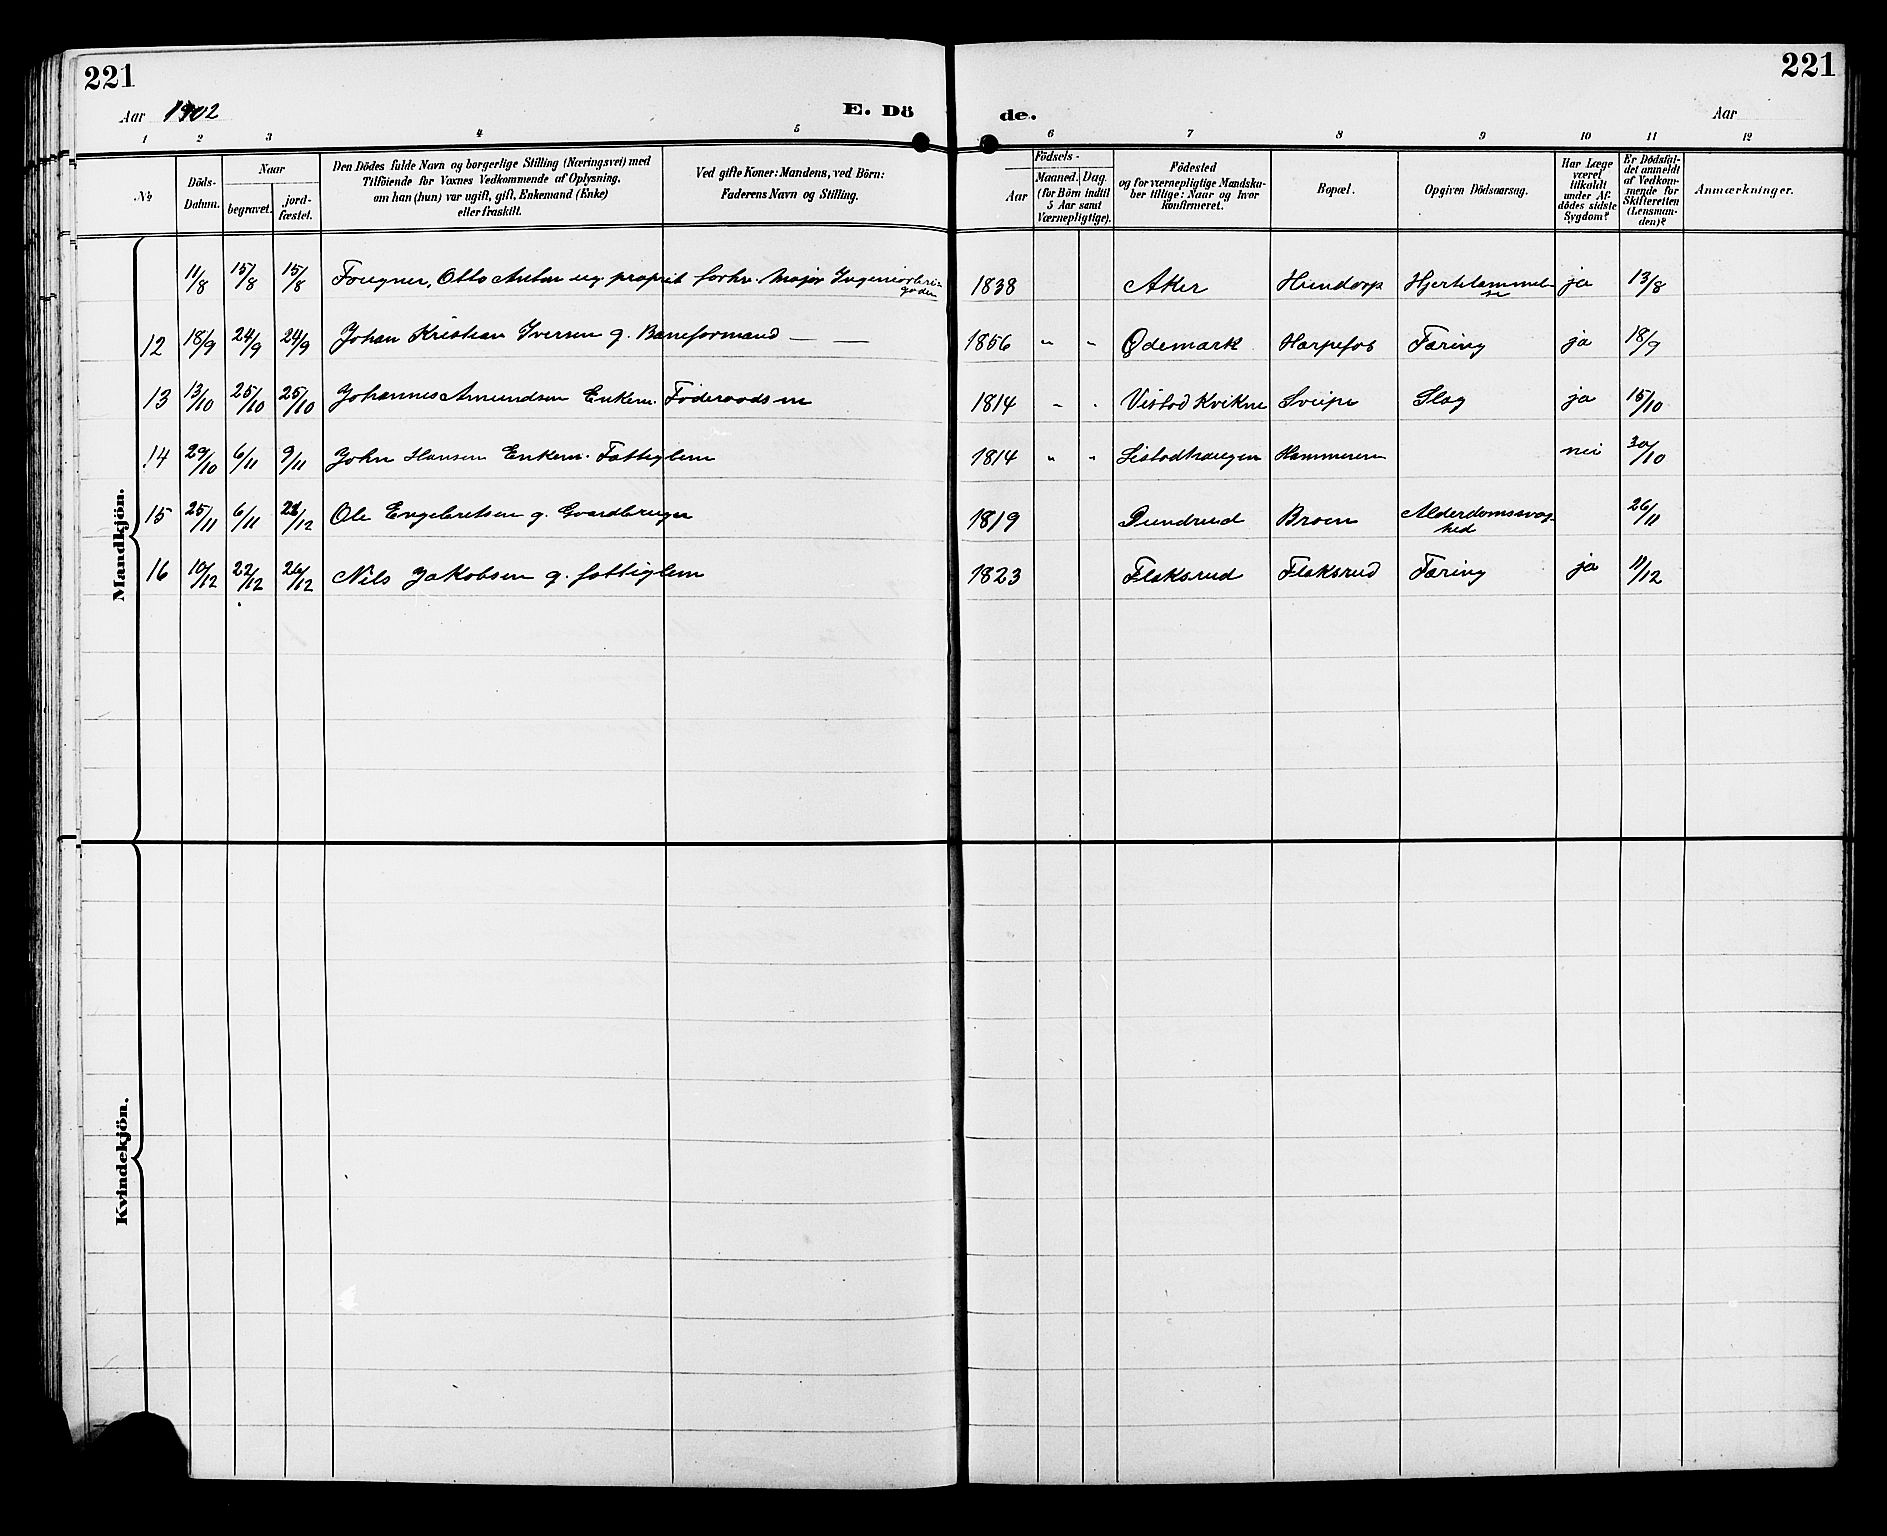 221
221
Aar 1902
E. Dö
de.
Aar
1 2 3 4 5 6 7 8 9 10 11 12
No
Döds-
Datum.
Naar
begravet.
jord-
fæstet.
Den Dödes fulde Navn og borgerlige Stilling (Næringsvei) med
Tilföiende for Voxnes Vedkommende af Oplysning,
om han (hun) var ugift, gift, Enkemand (Enke)
eller fraskilt.
Ved gifte Koner: Mandens, ved Börn:
Faderens Navn og Stilling.
Födsels-
Aar
Maaned. Dag.
(for Börn indtil
5 Aar samt
Værnepligtige).
Födested
og for værnepligtige Mandska-
ber tillige: Naar og hvor
konfirmeret.
Bopæl.
Opgiven Dödsaarsag.
Har Læge
været
tilkaldt
under Af-
dödes sidste
Sygdom?
Er Dödsfal-
det anmeldt
af Vedkom-
mende for
Skifteretten
(Lensman-
den)?
Anmærkninger.
Mandkjön.
11/8 15/8 15/8 Fougner, Otto Anton ug propriet forhv. Major Ingeniörbri- 1838 Aker Hundorp Hjertelammel- ja 13/8
gaden
se
12 18/9 24/9 24/9 Johan Kristian Iversen g. Baneformand — — 1856 " " Ödemark Harpefos Tæring ja 18/9
13 13/10 25/10 25/10 Johannes Amundsen Enkem. Föderaadsm 1814 " " Vistad Kvikne Sveipe Slag ja 15/10
14 29/10 6/11 9/11 John Hansen Enkem. Fattiglem 1814 " " Hammeren nei 30/10
15 25/11 6/11 /12 Ole Engebretsen g. Gaardbruger 1819 Pundrud Broen Alderdomssvag- 26/11
hed
16 10/12 22/12 26/12 Nils Jakobsen g. fattiglem 1823 Flaksrud Flaksrud Tæring ja 11/12
Kvindekjön.